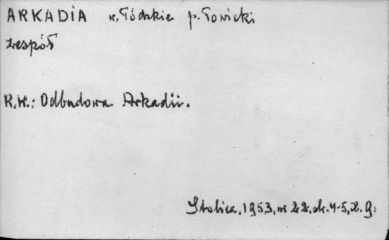 ARKADIA w. Łódzkie p. Łowicki
zespół
K.W.: Odbudowa Arkadii.
Stolica, 1953, nr 22, sk. 4-5, il. 9.